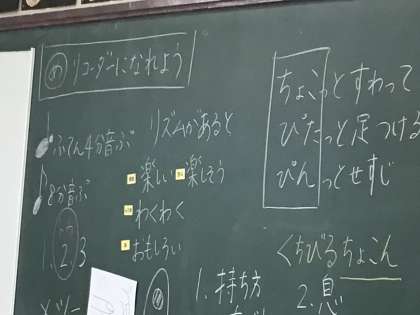 め リコーダーになれよう
ふてん4分音ぷ
8分音ぷ
1. 2. 3
リズムがあると
楽しい 楽しそう
わくわく
おもしろい
ちょこっとすわって
ぴたっと足つける
ぴんっとせすじ
くちびるちょこん
1. 持ち方
2. 息